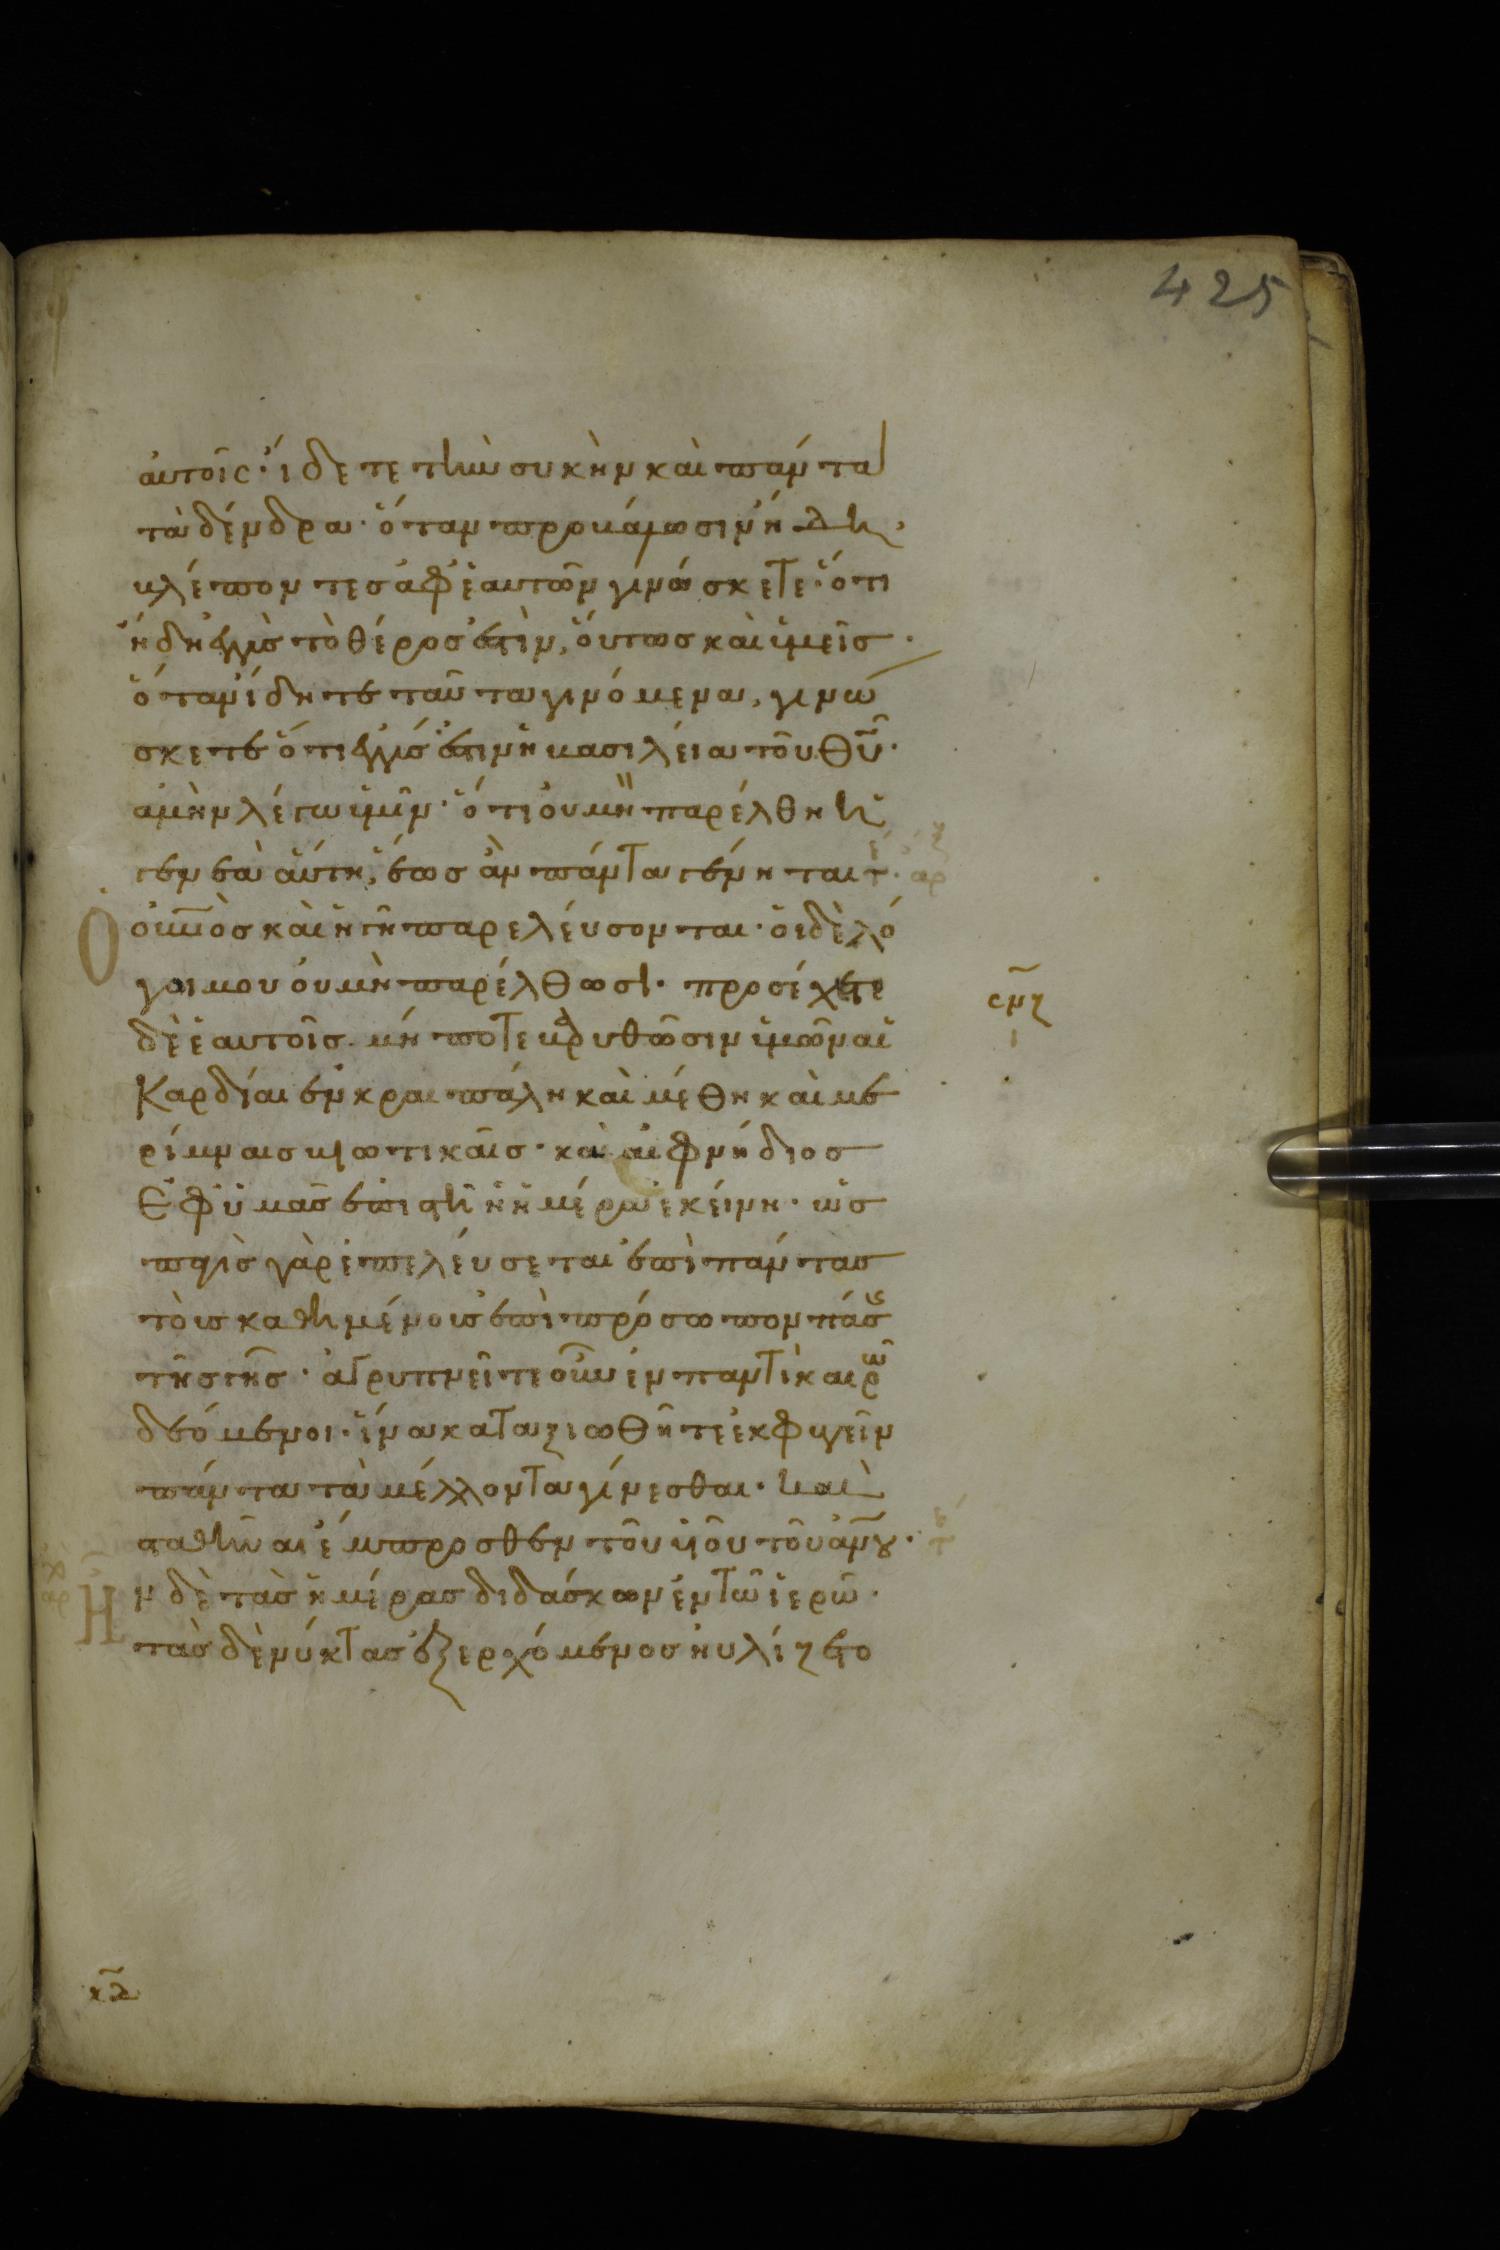 425
αὐτοῖς· ἴδετε τὴν συκὴν καὶ πάντα
τὰ δένδρα· ὅταν προβάλωσιν ἤδη,
βλέποντες ἀφ' ἑαυτῶν γινώσκετε· ὅτι
ἤδη ἐγγὺς τὸ θέρος ἐστὶν, οὕτως καὶ ὑμεῖς·
ὅταν ἴδητε ταῦτα γινόμενα, γινώ
σκετε ὅτι ἐγγύς ἐστιν ἡ βασιλεία τοῦ θυ·
ἀμὴν λέγω ὑμῖν· ὅτι οὐ μὴ παρέλθη ἡ
γενεὰ αὕτη, ἕως ἂν πάντα γένηται·
Ὁ ουνος καὶ ἡ γῆ παρελεύσονται· οἱ δὲ λό
γοι μου οὐ μὴ παρέλθωσι· προσέχετε
σμζ
ι
δὲ ἑαυτοῖς· μή ποτε βαρυθῶσιν ὑμῶν αἱ
καρδίαι ἐν κραιπάλη καὶ μέθη καὶ με
ρίμναις βιωτικαῖς· καὶ αἰφνήδιος
ἐφ' ὑμᾶς ἐπιστῆ ἡ ἡμέρα ἐκείνη· ὡς
παγὶς γὰρ ἐπελεύσεται ἐπὶ πάντας
τοὺς καθημένους ἐπὶ πρόσωπον πάσης
τῆς γῆς· ἀγρυπνεῖτε οὖν ἐν παντὶ καιρῶ
δεόμενοι· ἵνα καταξιωθῆτε ἐκφυγεῖν
πάντα τὰ μέλλοντα γίνεσθαι· καὶ
σταθῆναι ἔμπροσθεν τοῦ υἱοῦ τοῦ ανου·
Ἦν δὲ τὰς ἡμέρας διδάσκων ἐν τῶ ἱερῶ·
τὰς δὲ νύκτας ἐξερχόμενος ηὐλίζετο